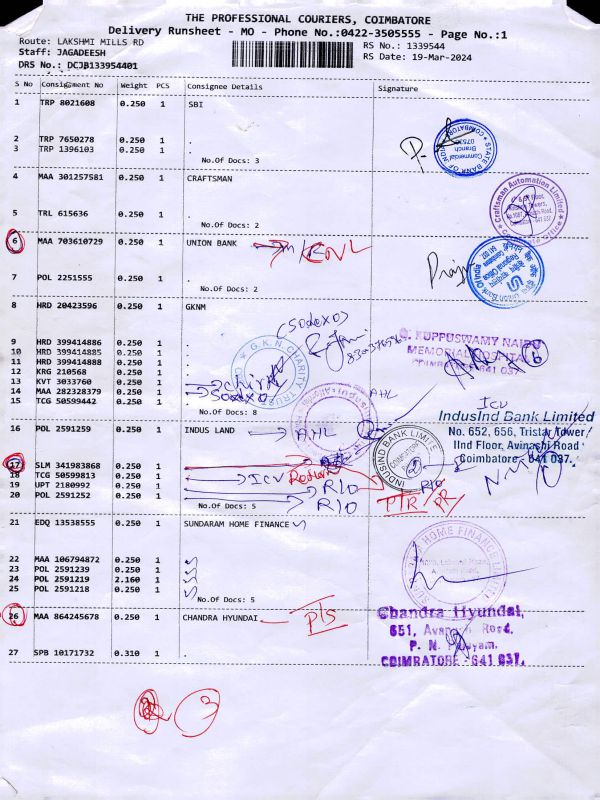 THE PROFESSIONAL COURIERS, COIMBATORE
Delivery Runsheet - MO - Phone No.:0422-3505555 - Page No.:1
Route: LAKSHMI MILLS RD
RS No.: 1339544
Staff: JAGADEESH
RS Date: 19-Mar-2024
DRS No.: DCJB133954401
S No Consignment No Weight PCS Consignee Details Signature
1 TRP 8021608 0.250 1 SBI
2 TRP 7650278 0.250 1 .
3 TRP 1396103 0.250 1 .
No.Of Docs: 3
STATE BANK OF INDIA
Commercial
Branch
COIMBATORE
4 MAA 301257581 0.250 1 CRAFTSMAN
5 TRL 615636 0.250 1 .
No.Of Docs: 2
Craftsman Automation Limited
6 MAA 703610729 0.250 1 UNION BANK
7 POL 2251555 0.250 1 .
No.Of Docs: 2
Union Bank
Regional Office
8 HRD 20423596 0.250 1 GKNM
(Sodexo)
9 HRD 399414886 0.250 1 .
10 HRD 399414885 0.250 1 .
11 HRD 399414888 0.250 1 .
12 KRG 210568 0.250 1 .
13 KVT 3033760 0.250 1 .
14 MAA 282328379 0.250 1 Sodexo
15 TCG 50599442 0.250 1 .
No.Of Docs: 8
G.K.N. CHARITY TRUST
G. KUPPUSWAMY NAIDU
MEMORIAL HOSPITAL
COIMBATORE 641 037
AHL
ICU
16 POL 2591259 0.250 1 INDUS LAND AHL
IndusInd Bank Limited
No. 652, 656, Tristar Tower
IInd Floor, Avinashi Road
Coimbatore - 641 037.
INDUSIND BANK LIMITED
17 SLM 341983868 0.250 1 .
18 TCG 50599813 0.250 1 ICU Return
19 UPT 2180992 0.250 1 R/O
20 POL 2591252 0.250 1 R/O
R/O
PTR/PR
No.Of Docs: 5
21 EDQ 13538555 0.250 1 SUNDARAM HOME FINANCE
22 MAA 106794872 0.250 1 .
23 POL 2591239 0.250 1 .
24 POL 2591219 2.160 1 .
25 POL 2591218 0.250 1 .
No.Of Docs: 5
HOME FINANCE LIMITED
26 MAA 864245678 0.250 1 CHANDRA HYUNDAI P/S
Chandra Hyundai,
651, Avanashi Road,
P. N. Palayam,
COIMBATORE - 641 037.
27 SPB 10171732 0.310 1 .
3